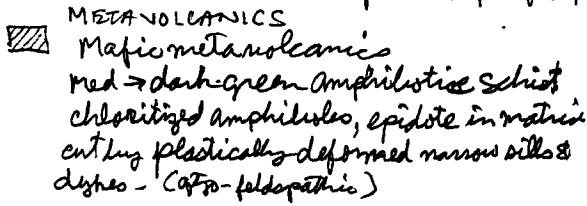 METAVOLCANICS
Mafic metavolcanics
med → dark-green amphibotic schist
chloritized amphiboles, epidote in matrix
cut by plastically-deformed narrow sills &
dykes - (qtzo-feldspathic)